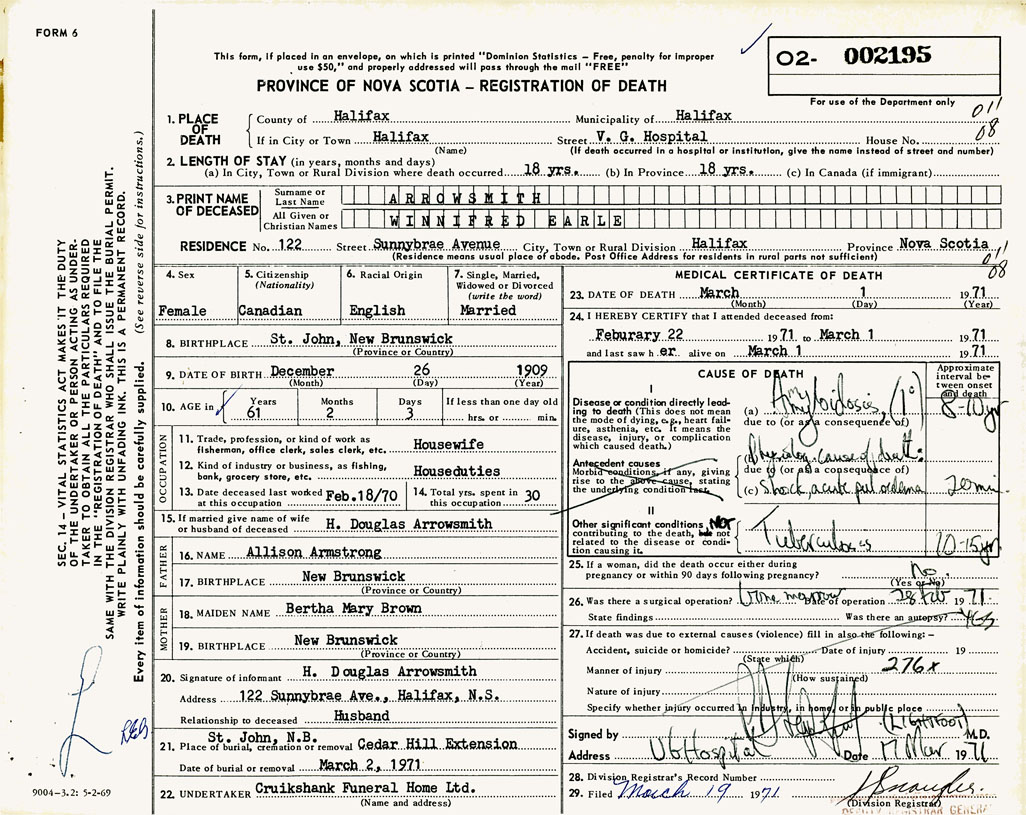 FORM 6
This form, if placed in an envelope, on which is printed "Dominion Statistics – Free, penalty for improper
use $50," and properly addressed will pass through the mail "FREE"
PROVINCE OF NOVA SCOTIA – REGISTRATION OF DEATH
02- 002195
For use of the Department only
011
08
1. PLACE OF DEATH
County of Halifax Municipality of Halifax
If in City or Town Halifax Street V. G. Hospital House No.
(Name) (If death occurred in a hospital or institution, give the name instead of street and number)
2. LENGTH OF STAY (in years, months and days)
(a) In City, Town or Rural Division where death occurred 18 yrs. (b) In Province 18 yrs. (c) In Canada (if immigrant)
3. PRINT NAME OF DECEASED
Surname or Last Name ARROWSMITH
All Given or Christian Names WINNIFRED EARLE
RESIDENCE No. 122 Street Sunnybrae Avenue City, Town or Rural Division Halifax Province Nova Scotia
(Residence means usual place of abode. Post Office Address for residents in rural parts not sufficient)
011
08
4. Sex
Female
5. Citizenship
(Nationality)
Canadian
6. Racial Origin
English
7. Single, Married,
Widowed or Divorced
(write the word)
Married
8. BIRTHPLACE St. John, New Brunswick
(Province or Country)
9. DATE OF BIRTH December 26 1909
(Month) (Day) (Year)
10. AGE in Years Months Days If less than one day old
61 2 3 hrs. or min.
OCCUPATION
11. Trade, profession, or kind of work as
fisherman, office clerk, sales clerk, etc. Housewife
12. Kind of industry or business, as fishing,
bank, grocery store, etc. Houseduties
13. Date deceased last worked
at this occupation Feb.18/70
14. Total yrs. spent in
this occupation 30
15. If married give name of wife
or husband of deceased H. Douglas Arrowsmith
FATHER
16. NAME Allison Armstrong
17. BIRTHPLACE New Brunswick
(Province or Country)
MOTHER
18. MAIDEN NAME Bertha Mary Brown
19. BIRTHPLACE New Brunswick
(Province or Country)
20. Signature of informant H. Douglas Arrowsmith
Address 122 Sunnybrae Ave., Halifax, N.S.
Relationship to deceased Husband
St. John, N.B.
21. Place of burial, cremation or removal Cedar Hill Extension
Date of burial or removal March 2, 1971
22. UNDERTAKER Cruikshank Funeral Home Ltd.
(Name and address)
MEDICAL CERTIFICATE OF DEATH
23. DATE OF DEATH March 1 1971
(Month) (Day) (Year)
24. I HEREBY CERTIFY that I attended deceased from:
Feburary 22 1971 to March 1 1971
and last saw her alive on March 1 1971
CAUSE OF DEATH
Approximate
interval be-
tween onset
and death
I
Disease or condition directly lead-
ing to death (This does not mean
the mode of dying, e.g., heart fail-
ure, asthenia, etc. It means the
disease, injury, or complication
which caused death.)
(a) Amyloidosis, (1°) 8-10 yr
due to (or as a consequence of)
Antecedent causes
Morbid conditions, if any, giving
rise to the above cause, stating
the underlying condition last.
(b) Physiolog. cause of death:
due to (or as a consequence of)
(c) Shock, acute pul. edema 20 min
II
Other significant conditions NOT
contributing to the death, but not
related to the disease or condi-
tion causing it.
Tuberculosis 10-15 yr
25. If a woman, did the death occur either during
pregnancy or within 90 days following pregnancy? No.
(Yes or No)
26. Was there a surgical operation? Bone marrow Date of operation 28 Feb 1971
State findings Was there an autopsy? Yes
27. If death was due to external causes (violence) fill in also the following: –
Accident, suicide or homicide? Date of injury 19
(State which)
Manner of injury 276x
(How sustained)
Nature of injury
Specify whether injury occurred in industry, in home, or in public place
(LIGHTFOOT)
Signed by M.D.
Address VG Hospital Date 17 Mar 1971
28. Division Registrar's Record Number
29. Filed March 19 1971
(Division Registrar)
DEPUTY REGISTRAR GENERAL
SEC. 14 – VITAL STATISTICS ACT MAKES IT THE DUTY
OF THE UNDERTAKER OR PERSON ACTING AS UNDER-
TAKER TO OBTAIN ALL THE PARTICULARS REQUIRED
IN THE "REGISTRATION OF DEATH" AND TO FILE THE
SAME WITH THE DIVISION REGISTRAR WHO SHALL ISSUE THE BURIAL PERMIT.
WRITE PLAINLY WITH UNFADING INK. THIS IS A PERMANENT RECORD.
Every item of information should be carefully supplied. (See reverse side for instructions.)
9004-3.2: 5-2-69